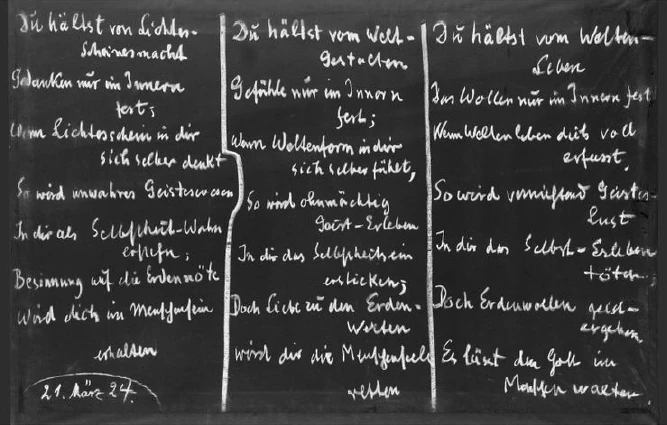 Du hältst von Lichtes-
Scheinesmacht
Gedanken nur im Innern
fest;
Wenn Lichtesschein in dir
sich selber denkt
So wird unwahres Geisteswesen
In dir als Selbstheit-Wahn
erstehn;
Besinnung auf die Erdennöte
Wird dich im Menschsein
erhalten
21. März 24.
Du hältst vom Welt-
Gestalten
Gefühle nur im Innern
fest;
Wenn Weltenform in dir
sich selber fühlt,
So wird ohnmächtig
Geist-Erleben
In dir das Selbstheitsein
ersticken;
Doch Liebe zu den Erden-
Werten
wird dir die Menschenseele
retten
Du hältst vom Welten-
Leben
Das Wollen nur im Innern fest
Wenn Weltenleben dich voll
erfasst,
So wird vernichtend Geistes-
Lust
In dir das Selbst-Erleben
töten;
Doch Erdenwollen geist-
ergeben
Es lässt den Gott im
Menschen walten.